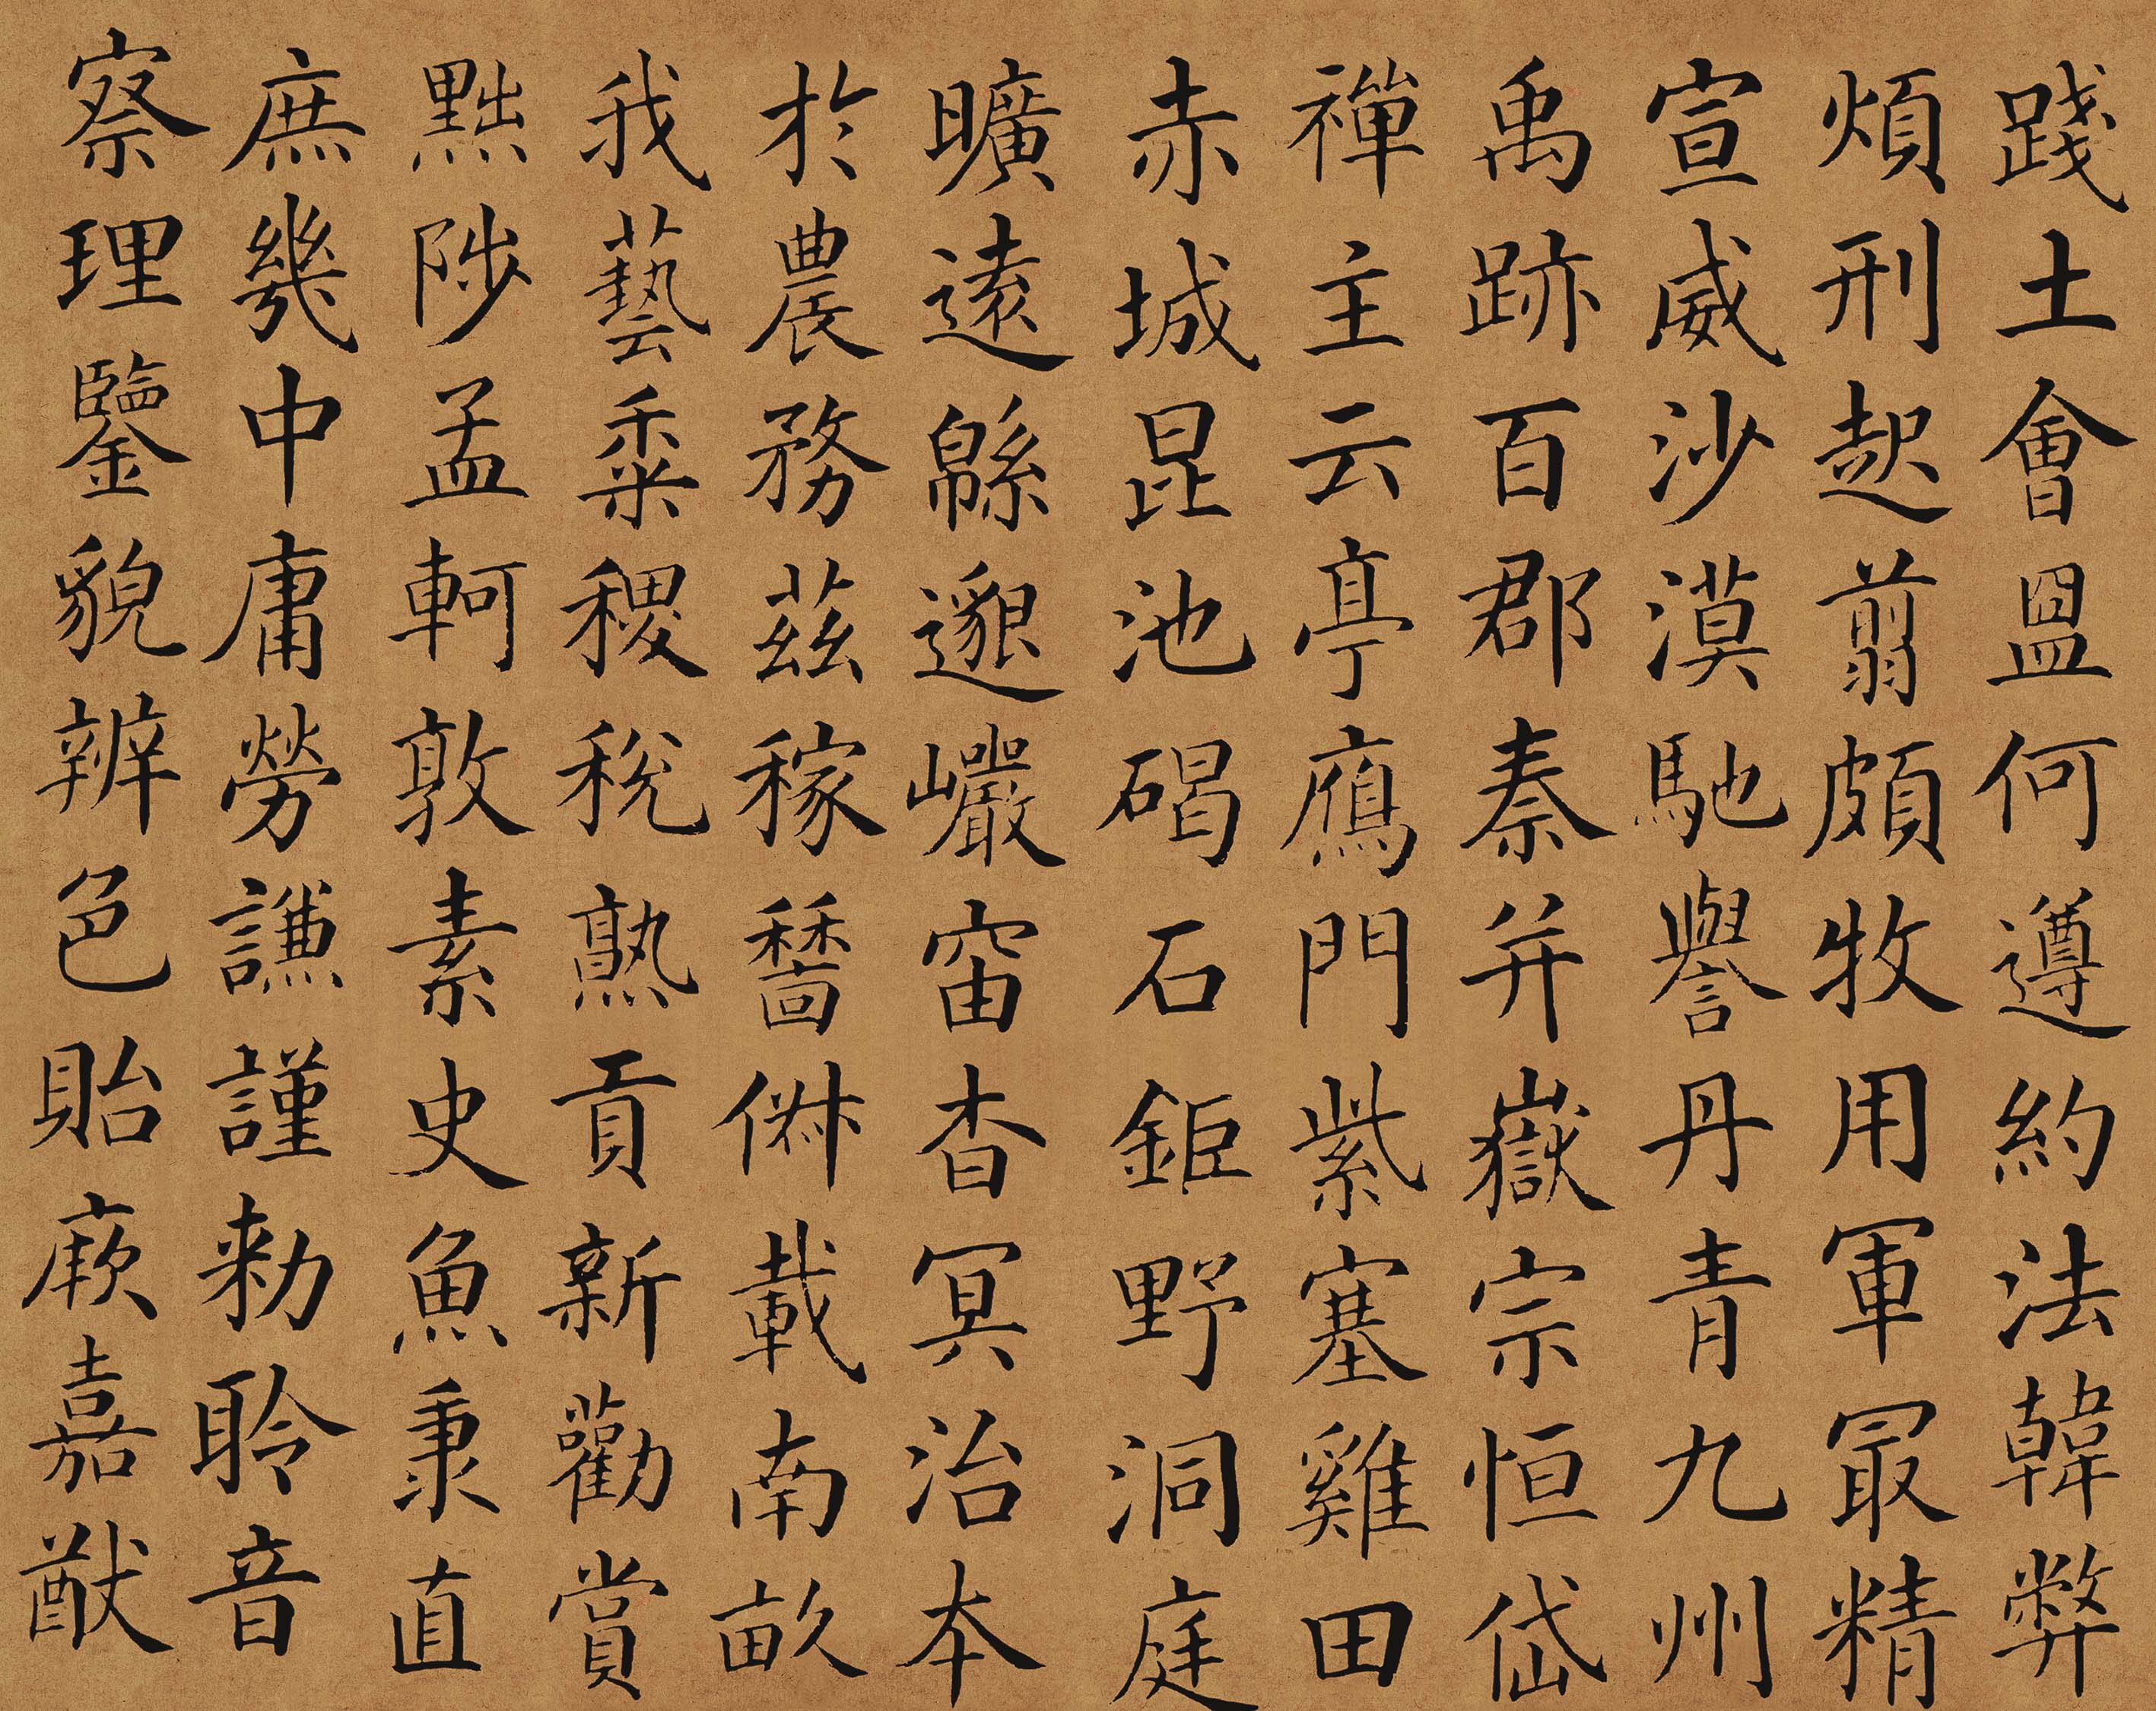 踐土會盟何遵約法韓弊
煩刑起翦頗牧用軍冣精
宣威沙漠馳譽丹青九州
禹跡百郡秦并嶽宗恒岱
禪主云亭鴈門紫塞雞田
赤城昆池碣石鉅野洞庭
曠遠緜邈巖岫杳冥治本
於農務茲稼穡俶載南畝
我藝黍稷稅熟貢新勸賞
黜陟孟軻敦素史魚秉直
庶幾中庸勞謙謹勑聆音
察理鑒貌辨色貽厥嘉猷